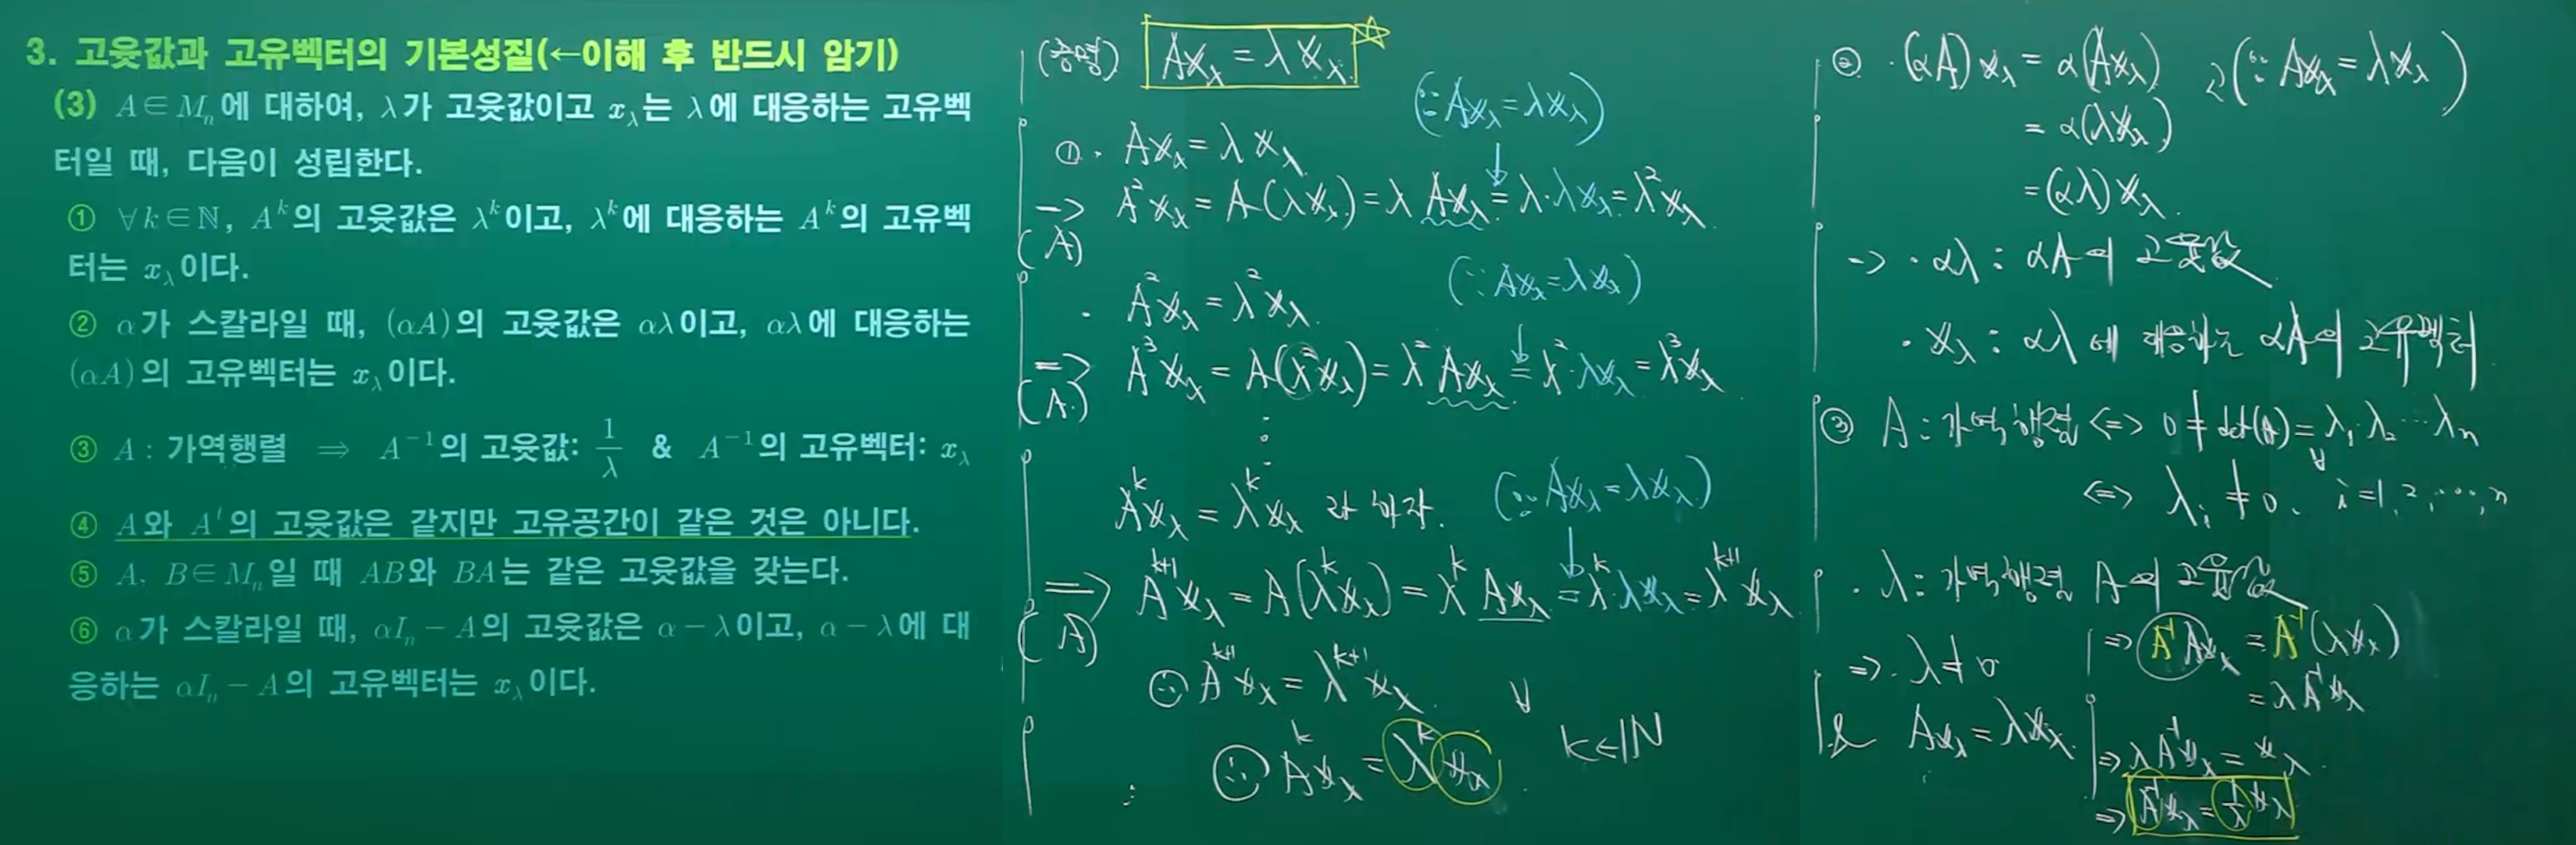 3. 고윳값과 고유벡터의 기본성질(←이해 후 반드시 암기)
(3) A∈Mₙ에 대하여, λ가 고윳값이고 x_λ는 λ에 대응하는 고유벡
터일 때, 다음이 성립한다.
① ∀k∈ℕ, Aᵏ의 고윳값은 λᵏ이고, λᵏ에 대응하는 Aᵏ의 고유벡
터는 x_λ이다.
② α가 스칼라일 때, (αA)의 고윳값은 αλ이고, αλ에 대응하는
(αA)의 고유벡터는 x_λ이다.
③ A : 가역행렬 ⇒ A⁻¹의 고윳값: 1/λ & A⁻¹의 고유벡터: x_λ
④ A와 Aᵗ의 고윳값은 같지만 고유공간이 같은 것은 아니다.
⑤ A, B∈Mₙ일 때 AB와 BA는 같은 고윳값을 갖는다.
⑥ α가 스칼라일 때, αIₙ−A의 고윳값은 α−λ이고, α−λ에 대
응하는 αIₙ−A의 고유벡터는 x_λ이다.
(증명) Ax_λ = λx_λ
(∵ Ax_λ = λx_λ)
①. Ax_λ = λx_λ
→ A²x_λ = A(λx_λ) = λAx_λ = λ·λx_λ = λ²x_λ
(A)
(∵ Ax_λ = λx_λ)
· A²x_λ = λ²x_λ
⇒ A³x_λ = A(λ²x_λ) = λ²Ax_λ = λ²·λx_λ = λ³x_λ
(A)
⋮
(∵ Ax_λ = λx_λ)
Aᵏx_λ = λᵏx_λ 라 하자.
⇒ Aᵏ⁺¹x_λ = A(λᵏx_λ) = λᵏAx_λ = λᵏ·λx_λ = λᵏ⁺¹x_λ
(A)
∴ Aᵏ⁺¹x_λ = λᵏ⁺¹x_λ
∴ Aᵏx_λ = λᵏx_λ ∀k∈ℕ
② · (αA)x_λ = α(Ax_λ) (∵ Ax_λ = λx_λ)
= α(λx_λ)
= (αλ)x_λ
→ · αλ : αA의 고윳값
· x_λ : αλ에 대응하는 αA의 고유벡터
③ A : 가역행렬 ⇔ 0 ≠ det(A) = λ₁·λ₂⋯λₙ
⇔ λᵢ ≠ 0, ∀i=1, 2, ⋯, n
· λ : 가역행렬 A의 고윳값
⇒ · λ ≠ 0
& Ax_λ = λx_λ
⇒ A⁻¹Ax_λ = A⁻¹(λx_λ)
= λA⁻¹x_λ
⇒ λA⁻¹x_λ = x_λ
⇒ A⁻¹x_λ = 1/λ x_λ